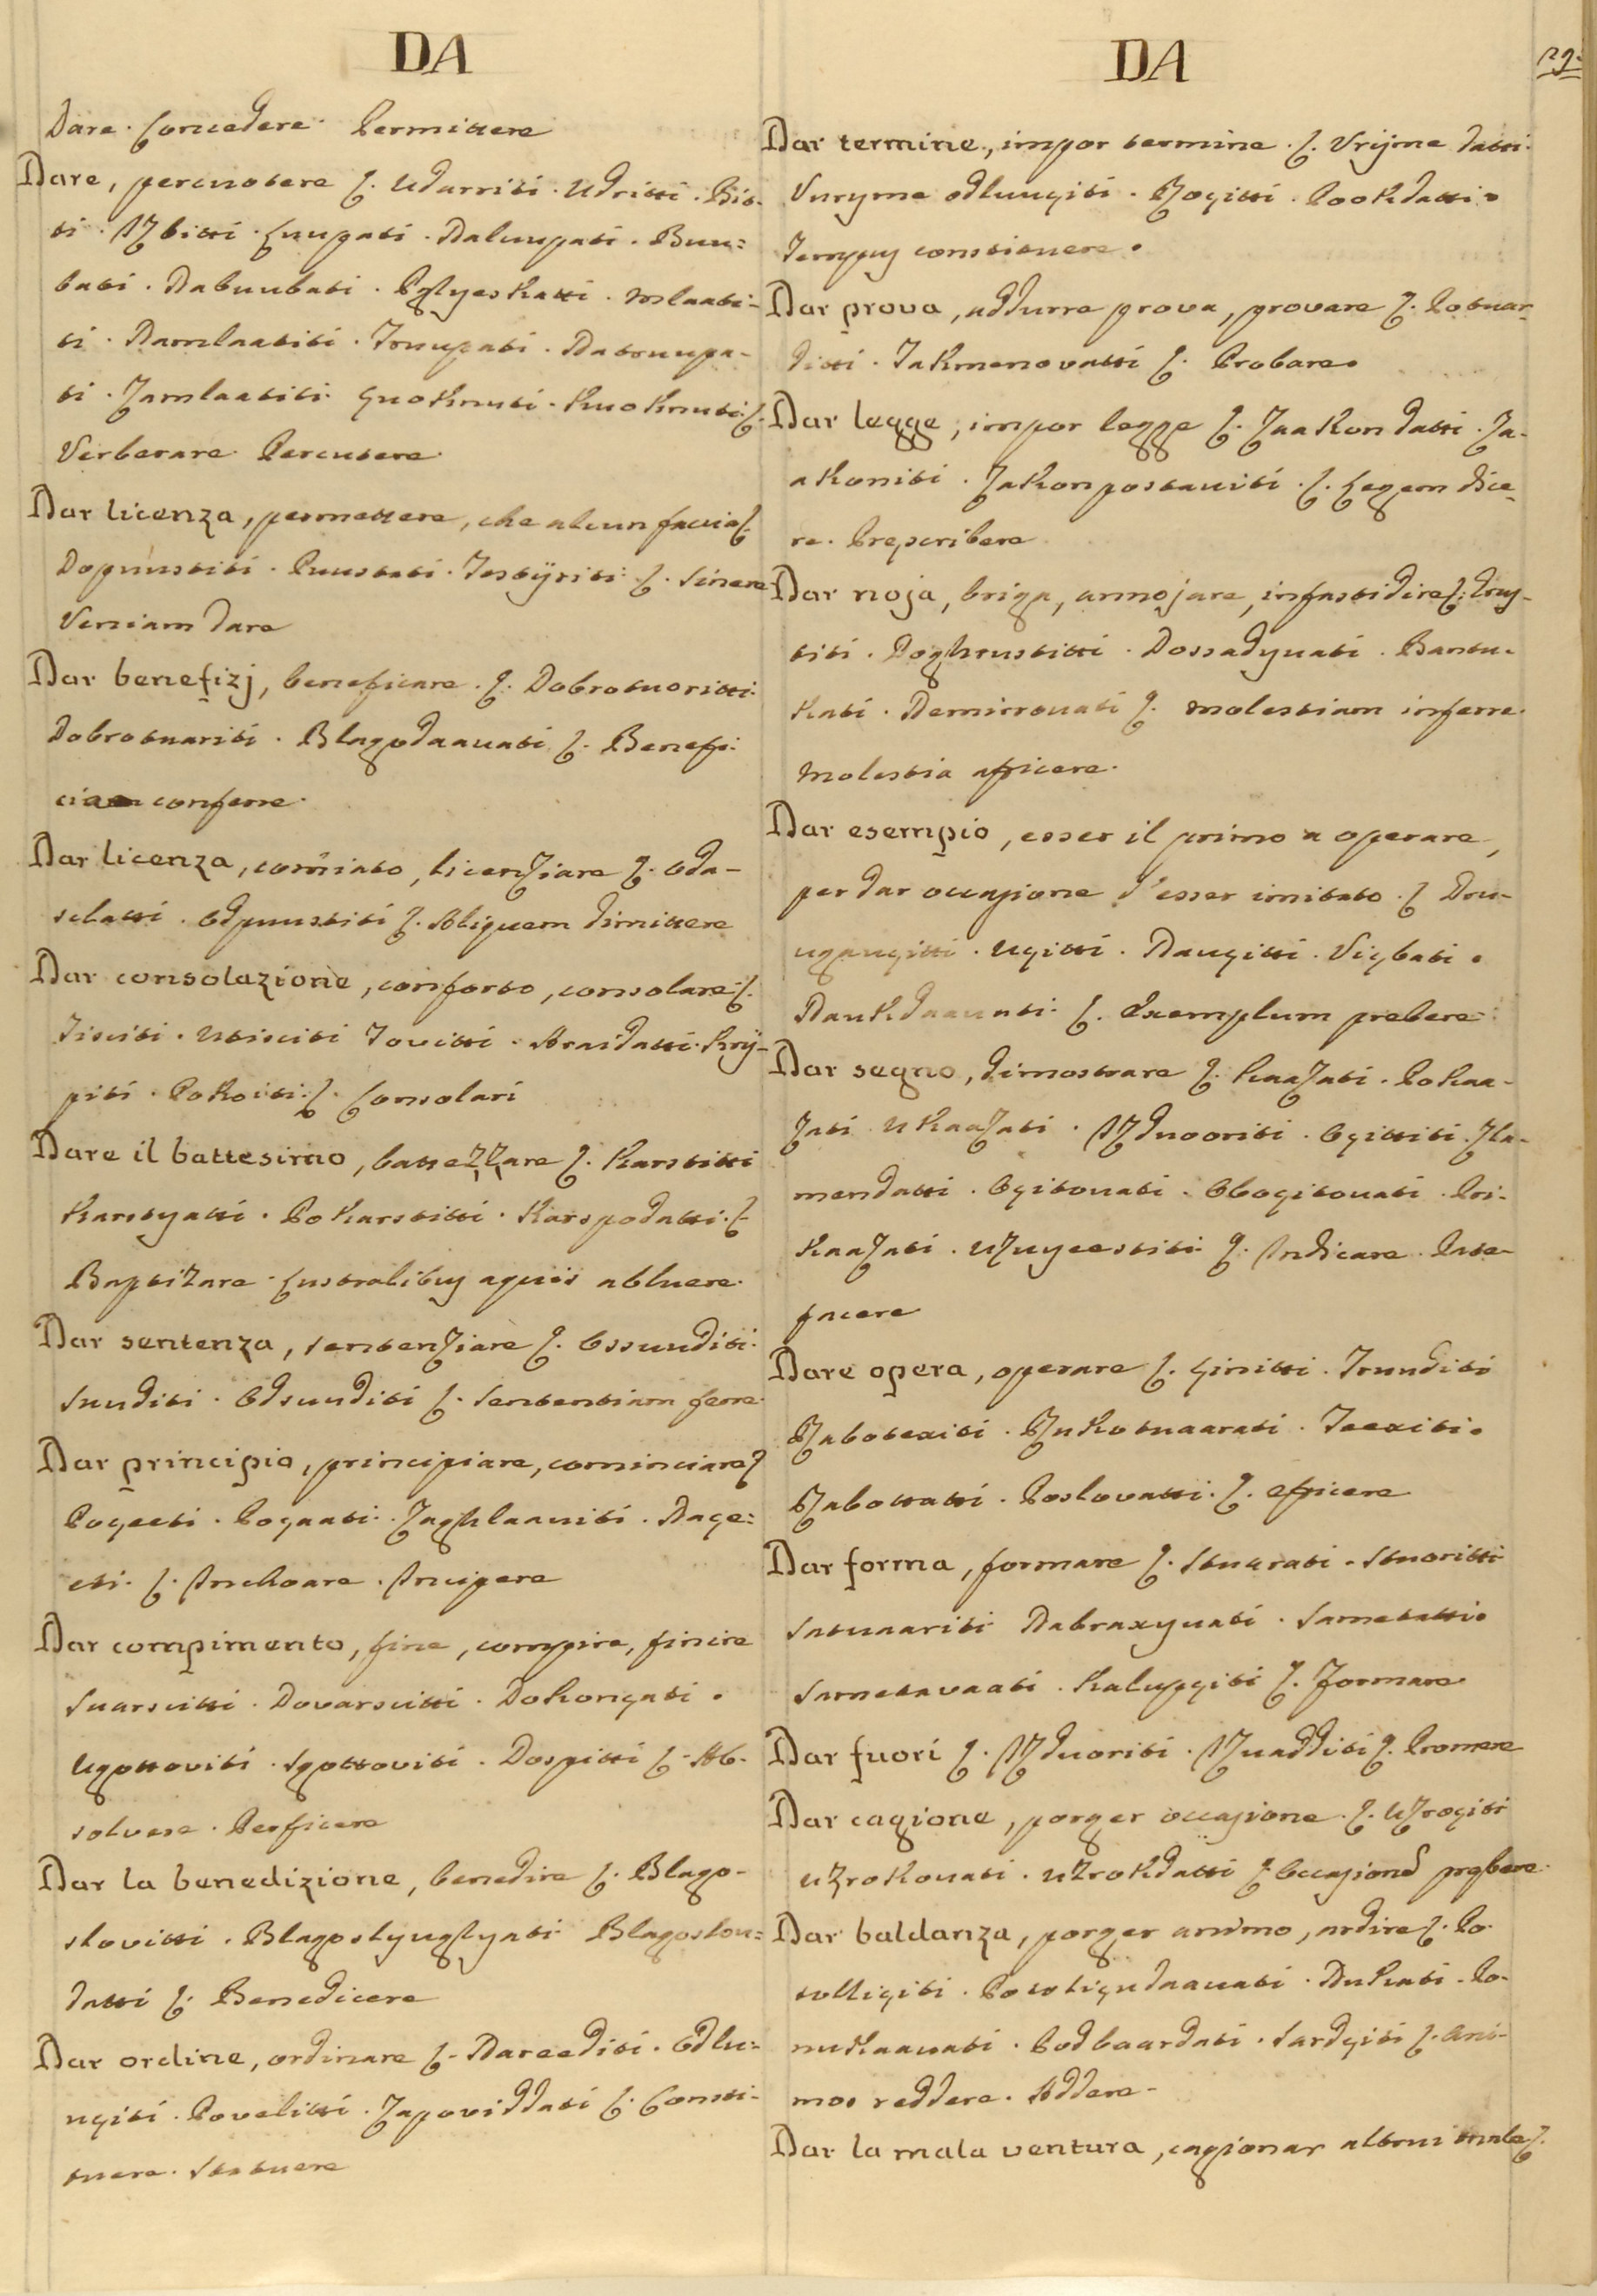 DA
Dare. Concedere. Permittere
Dare, percuotere ſ. Udarriti. Udritti. Bit-
ti. Izbitti. Luupati. Naluupati. Buu=
bati. Nabuubati. Pglyeskatti. mlaati-
ti. Namlaatiti. Truupati. Natruupa-
ti. Zamlaatiti. Quoknuti. Kuoknuti. ſ.
Verberare. Percutere.
Dar licenza, permettere, che alcun faccia ſ.
Dopuustiti. Puustati. Testÿriti. ſ. Sinere
Veniam dare
Dar benefizj, beneficare. ſ. Dobrotuoritti.
Dobrotuariti. Blagodaauati ſ. Benefi:
cia conferre.
Dar licenza, comiato, licenziare ſ. Oda-
slatti. Odpuustiti ſ. Aliquem dimittere
Dar consolazione, conforto, consolare ſ.
Tisciti. Utisciti Tovitti. Araidatti. Krÿ-
piti. Pokoiti. ſ. Consolari
Dare il battesimo, battezzare ſ. Karstitti
Karstyatti. Pokarstitti. Karspodatti. ſ.
Baptizare. Lustralibus aquis abluere.
Dar sentenza, sentenziare ſ. Ossuuditi.
Suuditi. Odsuuditi ſ. Sententiam ferre.
Dar principio, principiare, cominciare ſ
Poçeeti. Poçaati. Zaghlaauiti. Naçe=
eti. ſ. Inchoare. Incipere
Dar compimento, fine, compire, finire
Suarscitti. Dovarscitti. Dokonçati.
Ugottoviti. Sgottoviti. Dospitti ſ. Ab-
solvere. Perficere
Dar la benedizione, benedire ſ. Blago-
slovitti. Blagoslyuglyati. Blagoslou=
datti ſ. Benedicere
Dar ordine, ordinare ſ. Nareediti. Odlu=
uçiti. Povelitti. Zapoviddati ſ. Consti-
tuere. Statuere
DA
29.
Dar termine, impor termine. ſ. Vrijme datti.
Vurijme odluuçiti. Roçitti. Rookdatti.
Tempus constituere.
Dar prova, addurre prova, provare ſ. Potuar-
ditti. Takmenovatti ſ. Probare.
Dar legge, impor legge ſ. Zaakon datti. Za-
akoniti. Zakon postauiti. ſ. Legem dice-
re. Prescribere
Dar noja, briga, annojare, infastidire ſ. Drus-
titi. Doghrustitti. Dossadyuati. Bantu-
kati. Nemirrouati ſ. molestiam inferre.
molestia afficere.
Dar esempio, esser il primo a operare,
per dar occasione d'esser imitato. ſ Dru-
ugauçitti. Uçitti. Nauçitti. Viçbati.
Naukdaauati. ſ. Exemplum prebere.
Dar segno, dimostrare ſ. Kaazati. Pokaa-
zati ukaazati. Izduooriti. Oçittiti. Zla-
mendatti. Oçitouati. Oboçitouati. Pri-
kaazati. uzuyeestiti ſ. Indicare. Pate-
facere
Dare opera, operare ſ. Çinitti. Truuditi
Rabotexiti. Rukotuaarati. Teexiti.
Rabottatti. Poslovatti. ſ. efficere
Dar forma, formare ſ. Stuarati. Stuoritti
Satuaariti Nabraxyuati. Sametatti.
Sametavaati. Kalupçiti ſ. Formare
Dar fuori ſ. Izduoriti. Izuadditi ſ. Promere
Dar cagione, porger occasione. ſ. Uzroçiti
uzrokouati. uzrokdatti ſ. Occasionẽ prębere.
Dar baldanza, porger animo, ardire ſ. Po-
solliçiti. Potoliçudaauati. Nukati. Po-
nukaauati. Podbaardati. Sardçiti ſ. Ani-
mos reddere. Addere.
Dar la mala ventura, cagionar altrui male ſ.